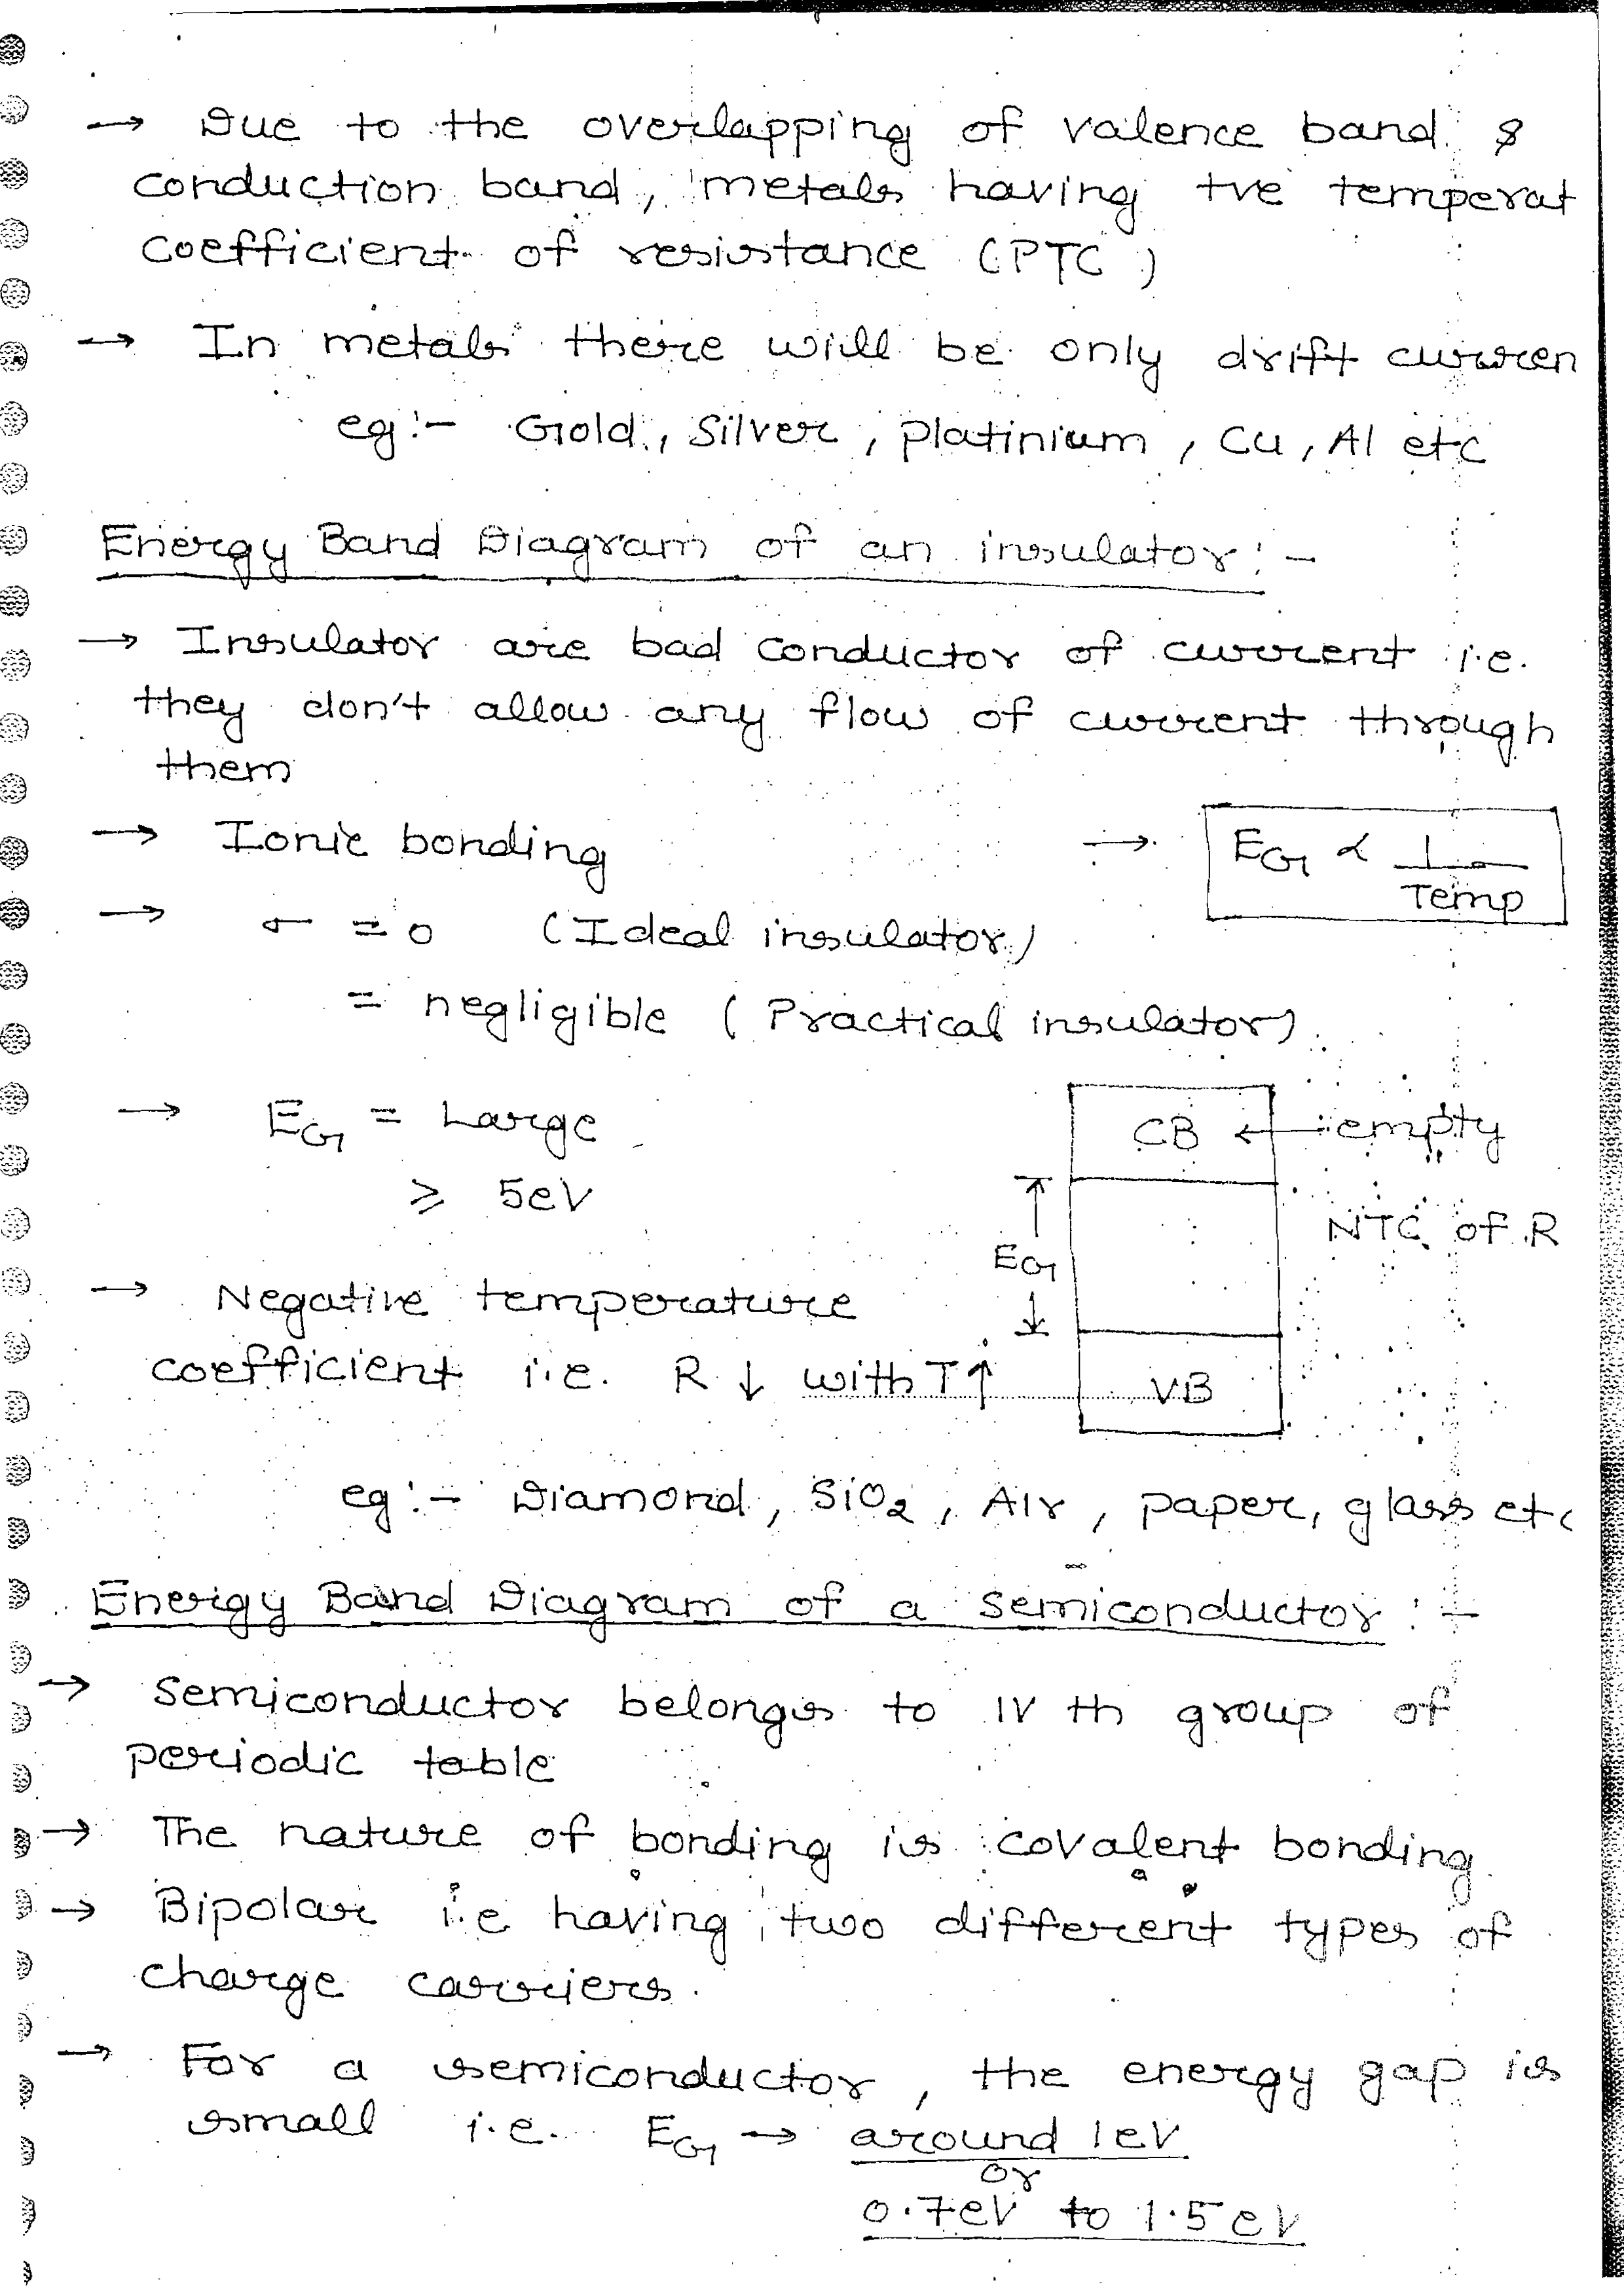 → Due to the overlapping of valence band &
conduction band, metals having +ve temperat
coefficient of resistance (PTC)
→ In metals there will be only drift curren
eg:- Gold, Silver, platinium, Cu, Al etc
Energy Band Diagram of an insulator:-
→ Insulator are bad conductor of current i.e.
they don't allow any flow of current through
them
→ Ionic bonding
→ E_G ∝ 1/Temp
→ σ = 0 (Ideal insulator)
= negligible (Practical insulator)
→ E_G = Large
≥ 5eV
CB ← empty
NTC of R
E_G
→ Negative temperature
coefficient i.e. R ↓ with T↑
VB
eg:- Diamond, SiO₂, Air, paper, glass etc
Energy Band Diagram of a semiconductor:-
→ Semiconductor belongs to IV th group of
periodic table
→ The nature of bonding is covalent bonding
→ Bipolar i.e having two different types of
charge carriers.
→ For a semiconductor, the energy gap is
small i.e. E_G → around 1eV
or
0.7eV to 1.5eV